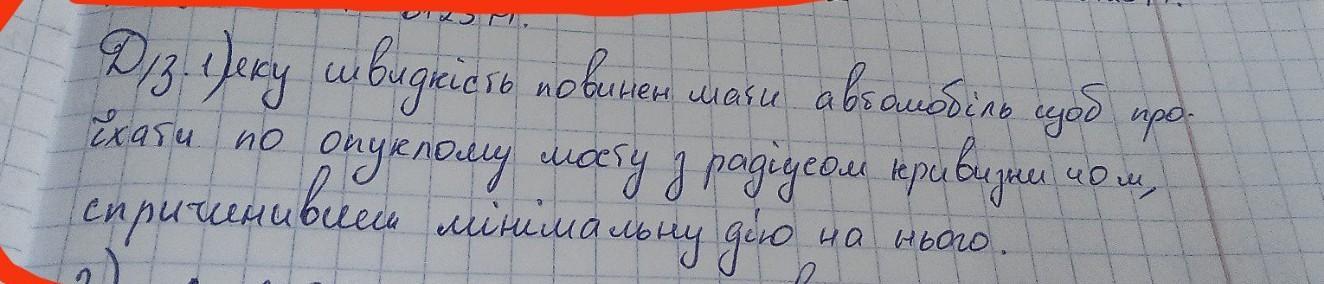 Д/з. 1) яку швидкість повинен мати автомобіль щоб про-
їхати по опуклому мосту з радіусом кривизни 40м,
спричинивши мінімальну дію на нього.
2)